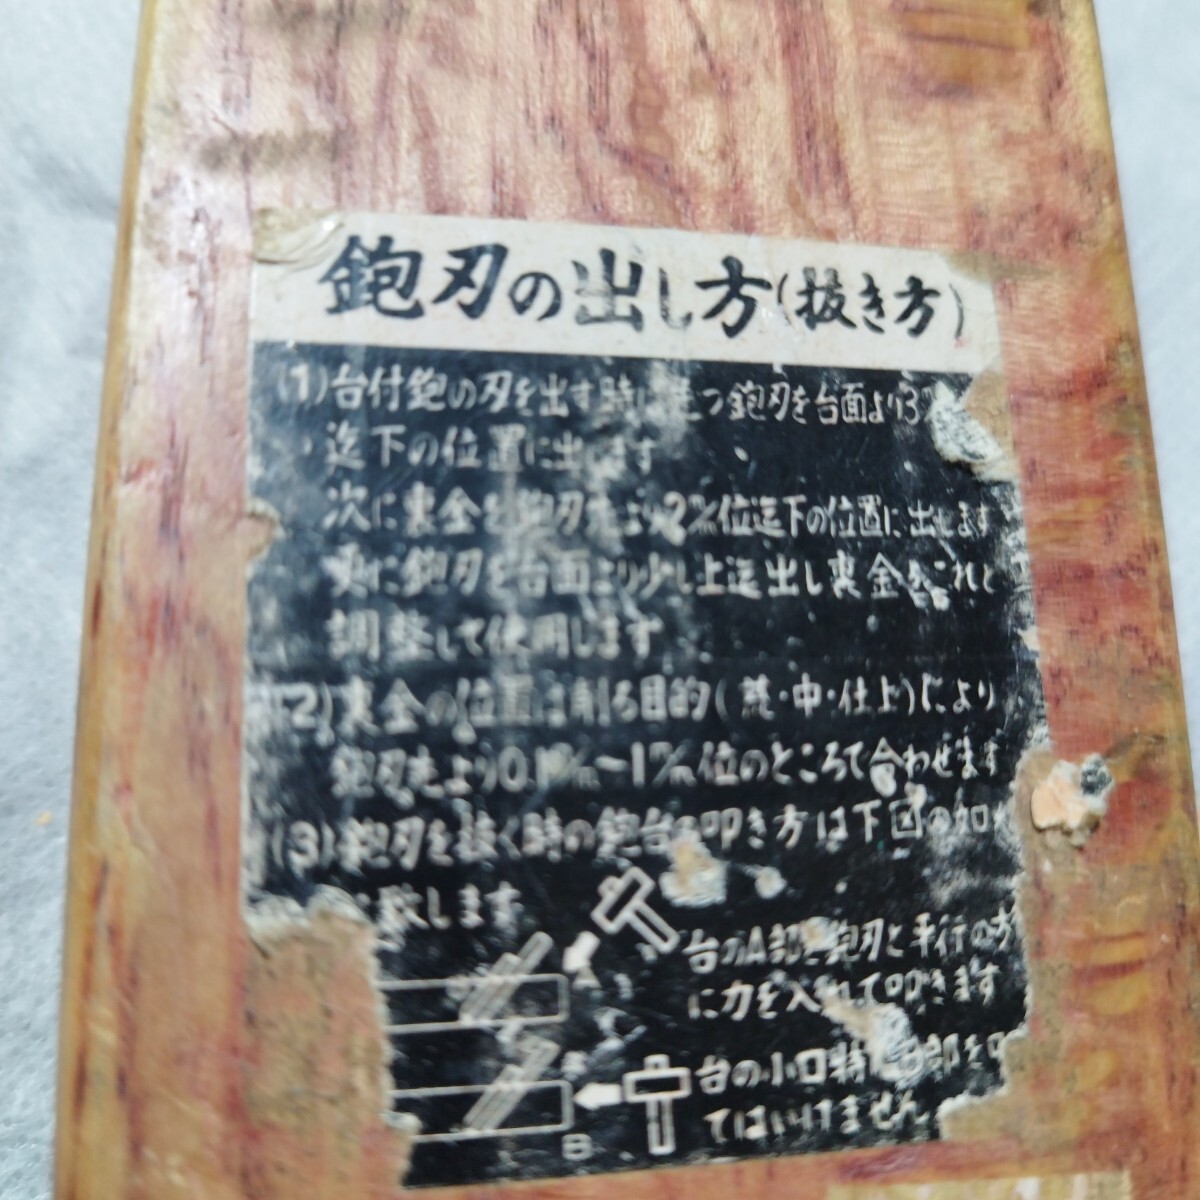 鉋刃の出し方(抜き方)
(1)台付鉋の刃を出す時に先つ鉋刃を台面より3
迄下の位置に出します
次に裏金を鉋刃先より2㎜位迄下の位置に出します
更に鉋刃を台面より少し上迄出し裏金をこれと
調整して使用します
(2)裏金の位置は削る目的(荒・中・仕上)により
鉋刃先より0.1㎜〜1㎜位のところで合わせます
(3)鉋刃を抜く時の鉋台の叩き方は下図の如く
致します
A
台のA部を鉋刃と平行の方
に力を入れて叩きます
B
台の小口特にB部を叩
てはいけません
B